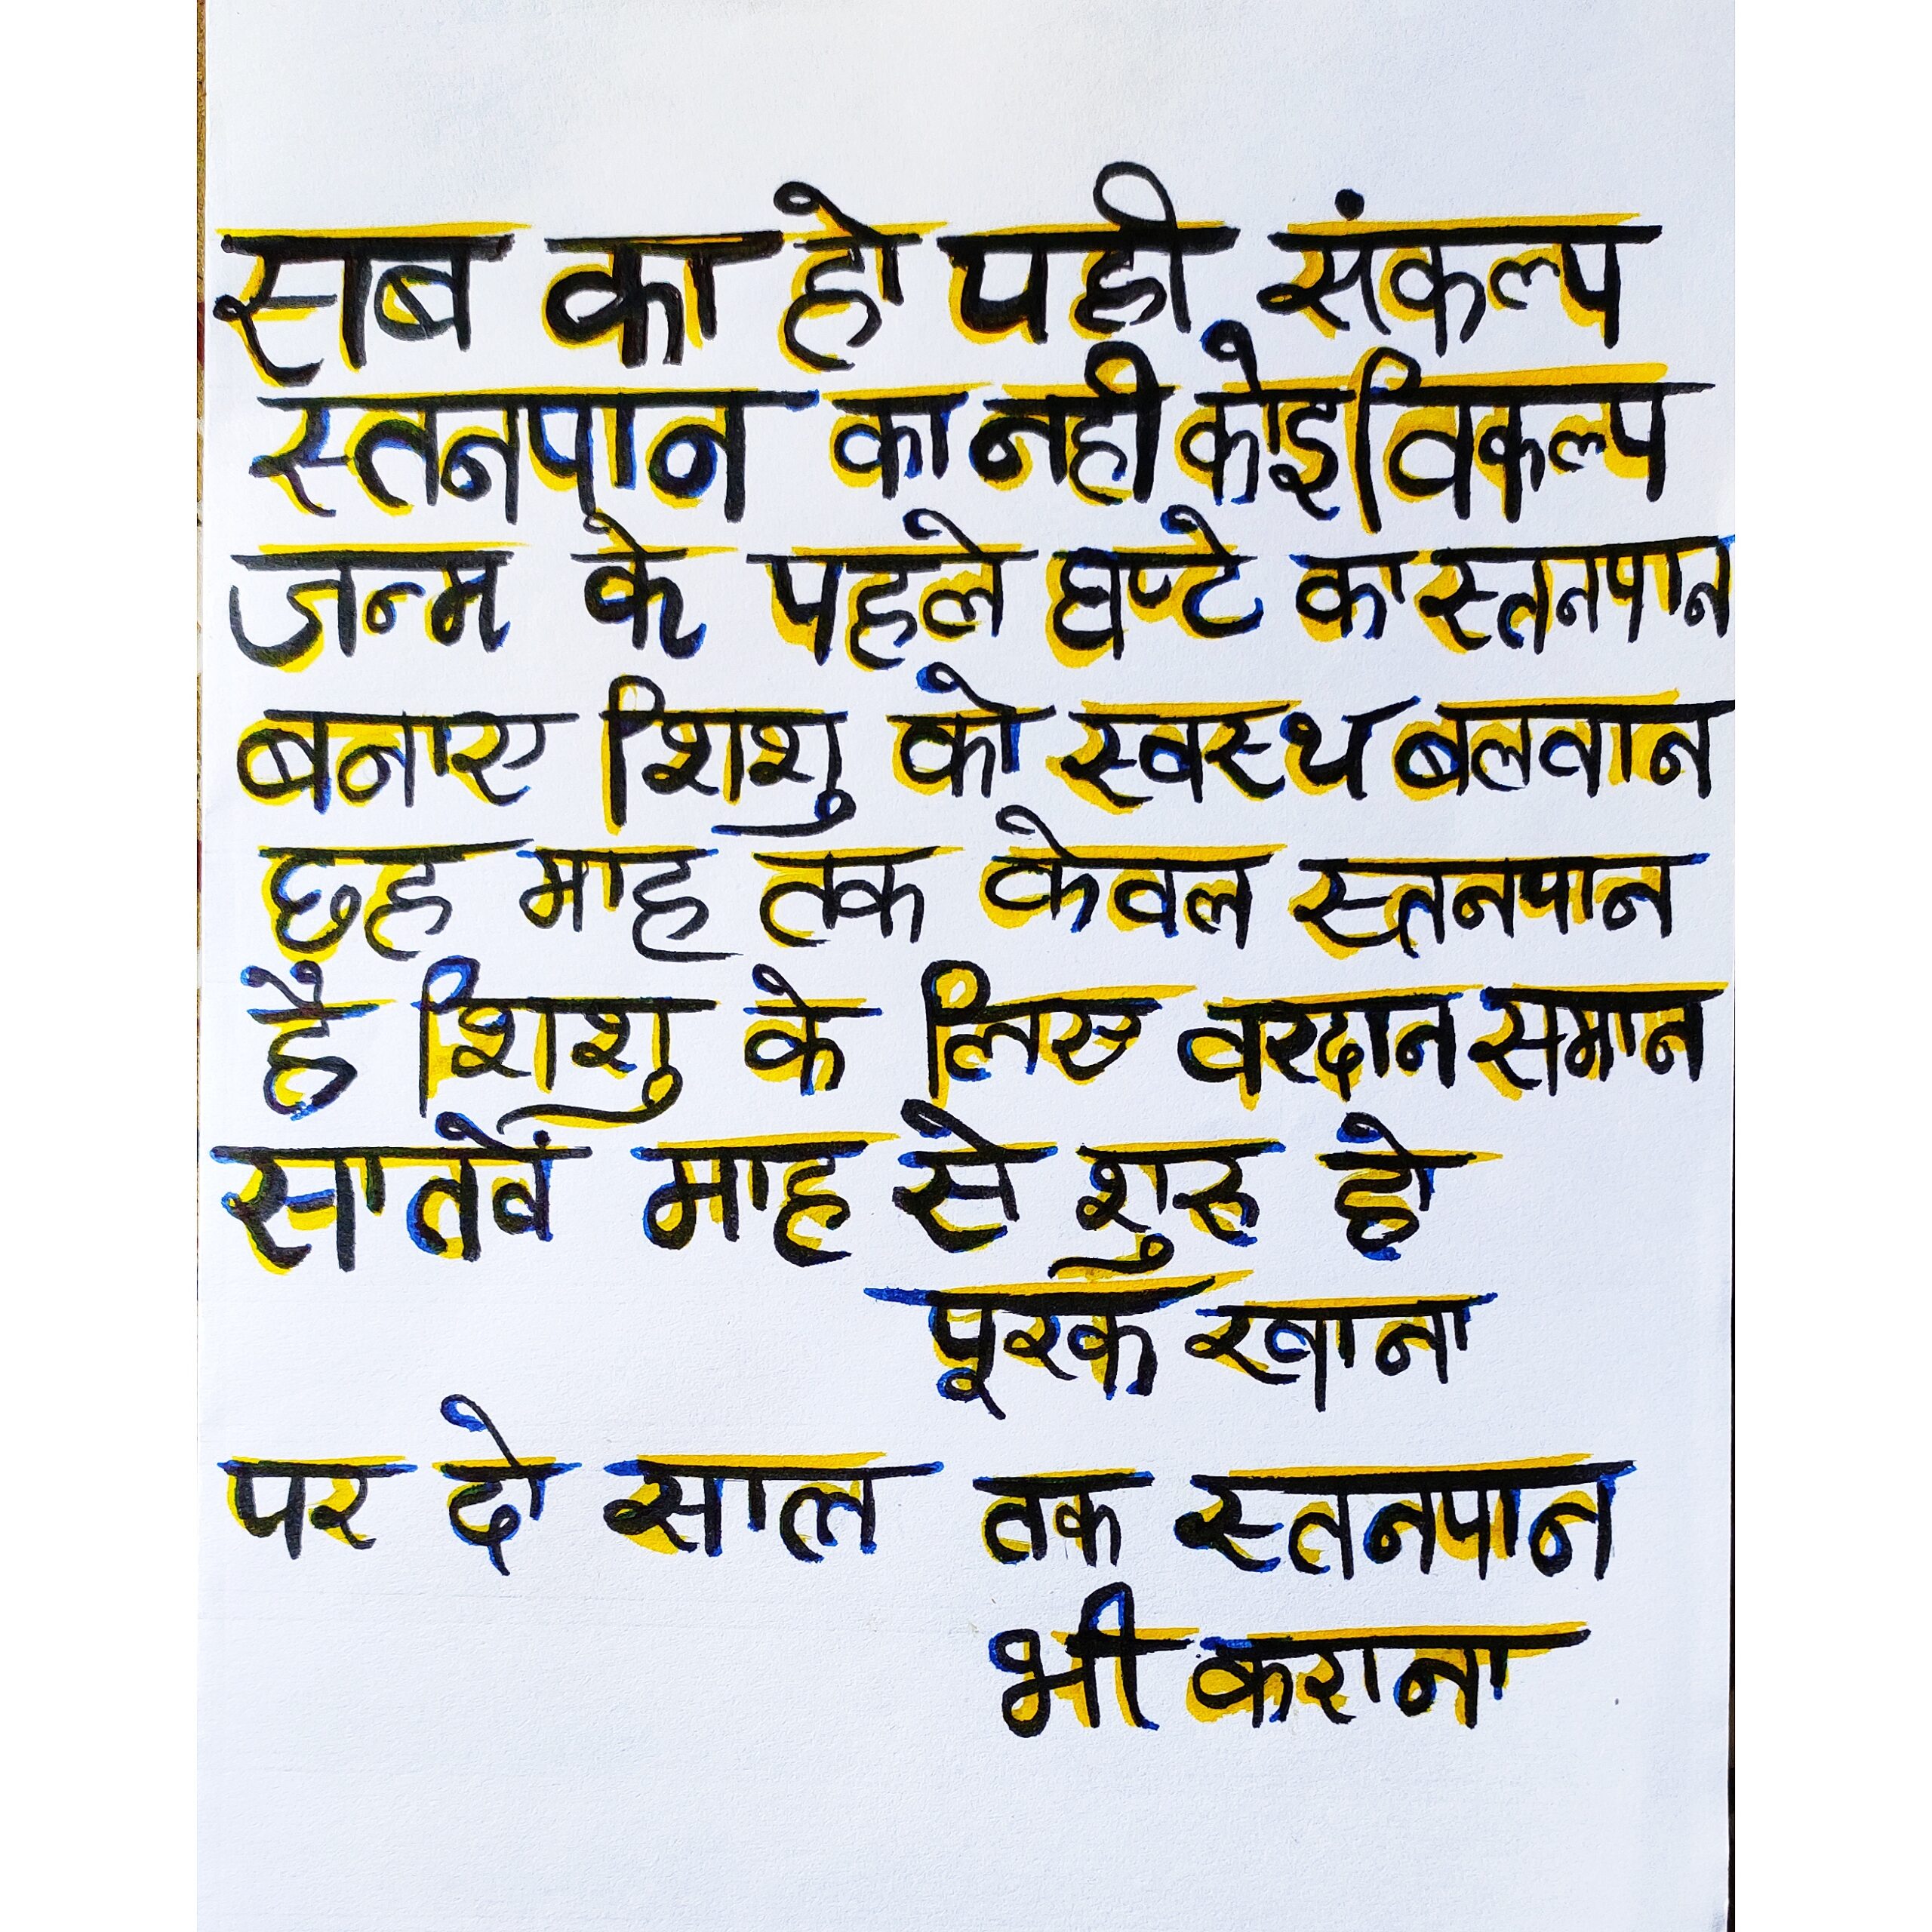 सब का हो यही संकल्प
स्तनपान का नही कोइ विकल्प
जन्म के पहले घण्टे का स्तनपान
बनाए शिशु को स्वस्थ बलवान
छह माह तक केवल स्तनपान
है शिशु के लिए वरदान समान
सातवें माह से शुरू हो
पूरक खाना
पर दो साल तक स्तनपान
भी कराना